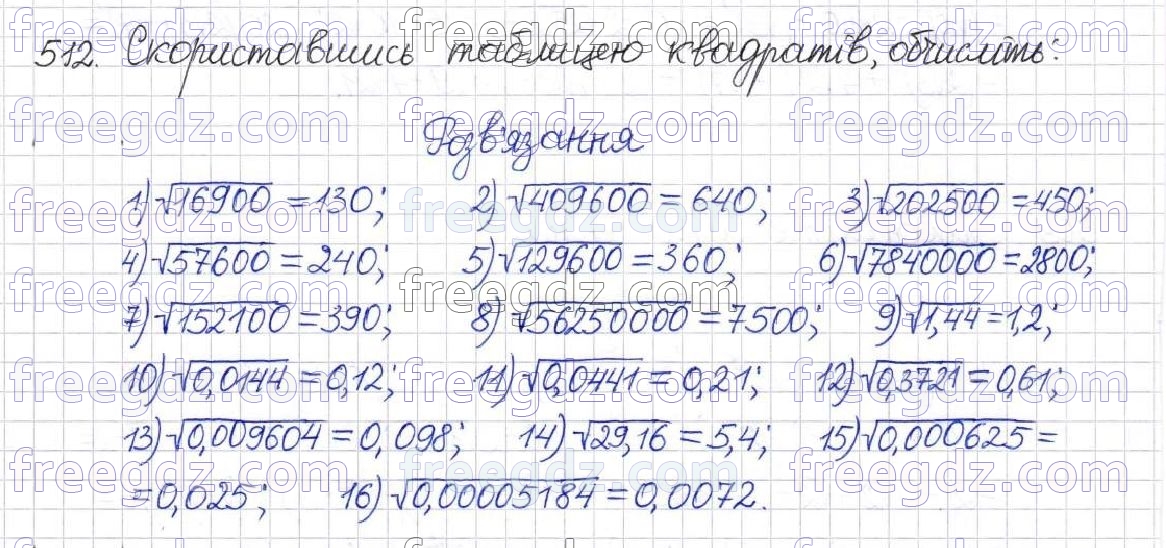 512. Скориставшись таблицею квадратів, обчисліть:
Розв'язання
1) √16900 = 130; 2) √409600 = 640; 3) √202500 = 450;
4) √57600 = 240; 5) √129600 = 360; 6) √7840000 = 2800;
7) √152100 = 390; 8) √56250000 = 7500; 9) √1,44 = 1,2;
10) √0,0144 = 0,12; 11) √0,0441 = 0,21; 12) √0,3721 = 0,61;
13) √0,009604 = 0,098; 14) √29,16 = 5,4; 15) √0,000625 =
= 0,025; 16) √0,00005184 = 0,0072.
freegdz.com